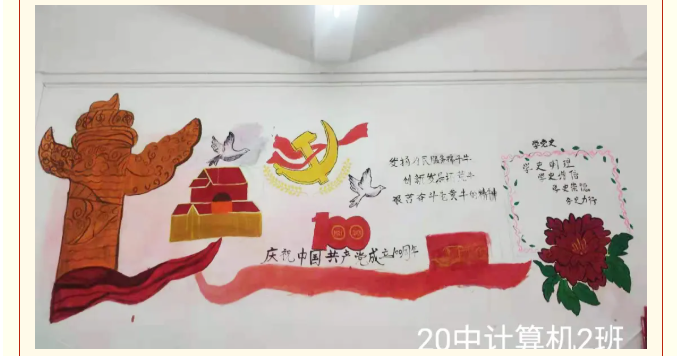 学党史
学史明理
学史增信
学史崇德
学史力行
发扬为民服务孺子牛
创新发展拓荒牛
艰苦奋斗老黄牛的精神
100
庆祝中国共产党成立100周年
20中计算机2班